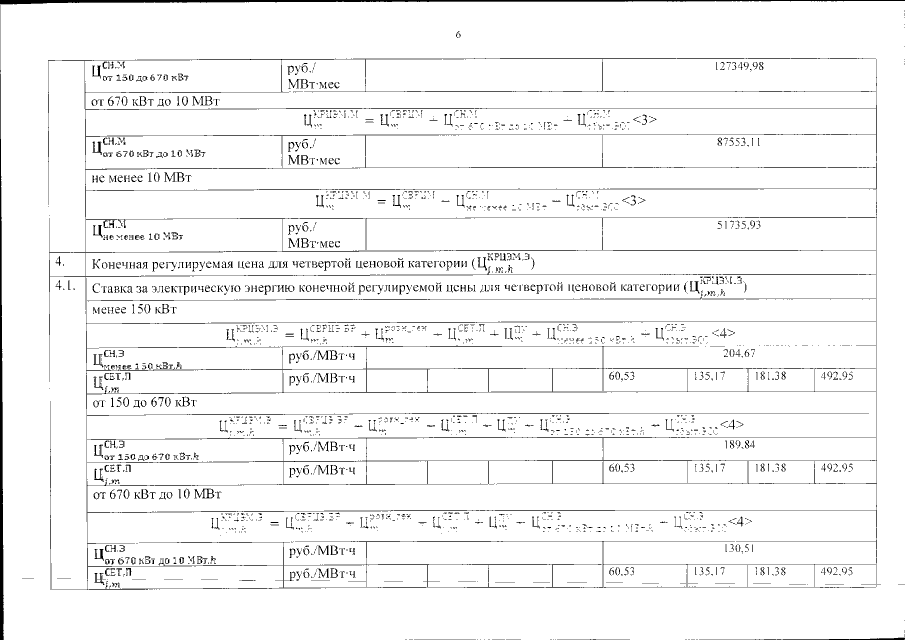 6
Ц СН.М от 150 до 670 кВт руб./ 127349,98
МВт·мес
от 670 кВт до 10 МВт
Ц КРЦЭМ.М m = Ц СВРЦМ m + Ц СН.М от 670 кВт до 10 МВт + Ц СН.М <3>
Ц СН.М от 670 кВт до 10 МВт руб./ 87553,11
МВт·мес
не менее 10 МВт
Ц КРЦЭМ.М m = Ц СВРЦМ m + Ц СН.М не менее 10 МВт + Ц СН.М <3>
Ц СН.М не менее 10 МВт руб./ 51735,93
МВт·мес
4. Конечная регулируемая цена для четвертой ценовой категории (Ц КРЦЭМ.Э j,m,h)
4.1. Ставка за электрическую энергию конечной регулируемой цены для четвертой ценовой категории (Ц КРЦЭМ.Э j,m,h)
менее 150 кВт
Ц КРЦЭМ.Э j,m,h = Ц СВРЦЭ.БР m,h + Ц розн_ген m + Ц СЕТ.П j,m + Ц ПУ m + Ц СН.Э менее 150 кВт.h + Ц СН.Э <4>
Ц СН.Э менее 150 кВт.h руб./МВт·ч 204,67
Ц СЕТ.П j,m руб./МВт·ч 60,53 135,17 181,38 492,95
от 150 до 670 кВт
Ц КРЦЭМ.Э j,m,h = Ц СВРЦЭ.БР m,h + Ц розн_ген m + Ц СЕТ.П j,m + Ц ПУ m + Ц СН.Э от 150 до 670 кВт.h + Ц СН.Э <4>
Ц СН.Э от 150 до 670 кВт.h руб./МВт·ч 189,84
Ц СЕТ.П j,m руб./МВт·ч 60,53 135,17 181,38 492,95
от 670 кВт до 10 МВт
Ц КРЦЭМ.Э j,m,h = Ц СВРЦЭ.БР m,h + Ц розн_ген m + Ц СЕТ.П j,m + Ц ПУ m + Ц СН.Э от 670 кВт до 10 МВт.h + Ц СН.Э <4>
Ц СН.Э от 670 кВт до 10 МВт.h руб./МВт·ч 130,51
Ц СЕТ.П j,m руб./МВт·ч 60,53 135,17 181,38 492,95